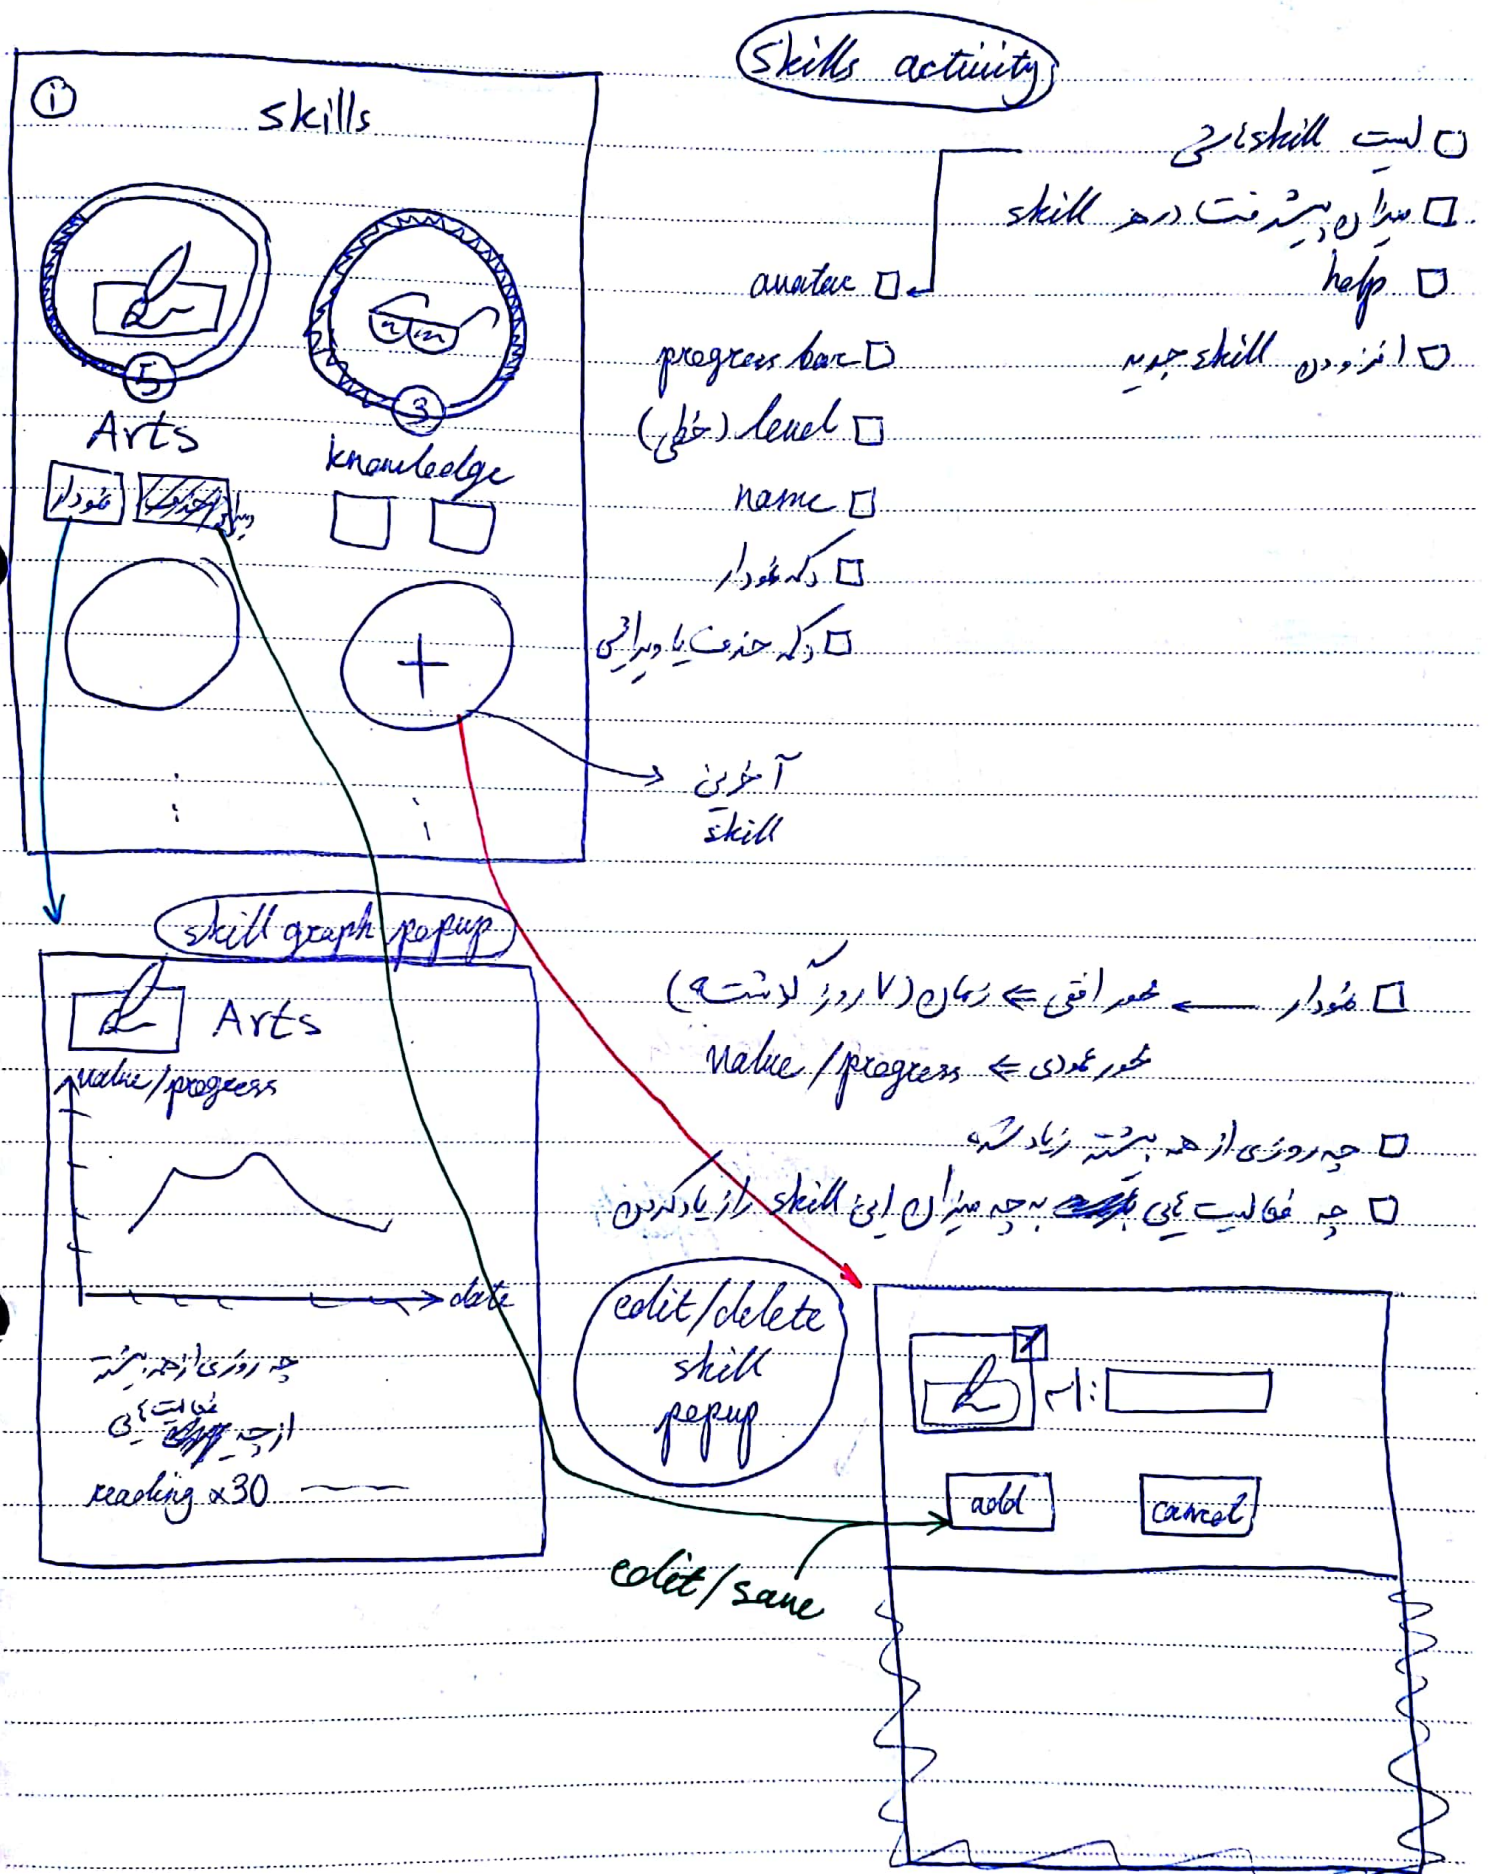 skills activity
i
skills
5
Arts
3
knowledge
نمودار
آخرین
skill
لیست skill هاش
میزان پیشرفت در هر skill
help
افزودن skill جدید
avatar
progress bar
level (خطی)
name
دکمه نمودار
دکمه حذف یا ویرایش
skill graph popup
Arts
value/progress
date
چه روزی از همه بیشتر
از چه فعالیت هایی
reading ×30
نمودار ← محور افقی ⇐ زمان (۷ روز گذشته)
محور عمودی ⇐ value/progress
چه روزی از همه بیشتر زیاد شده
چه فعالیت هایی به چه میزان این skill را زیاد کردن
edit/delete
skill
popup
اسم:
add
cancel
edit/save